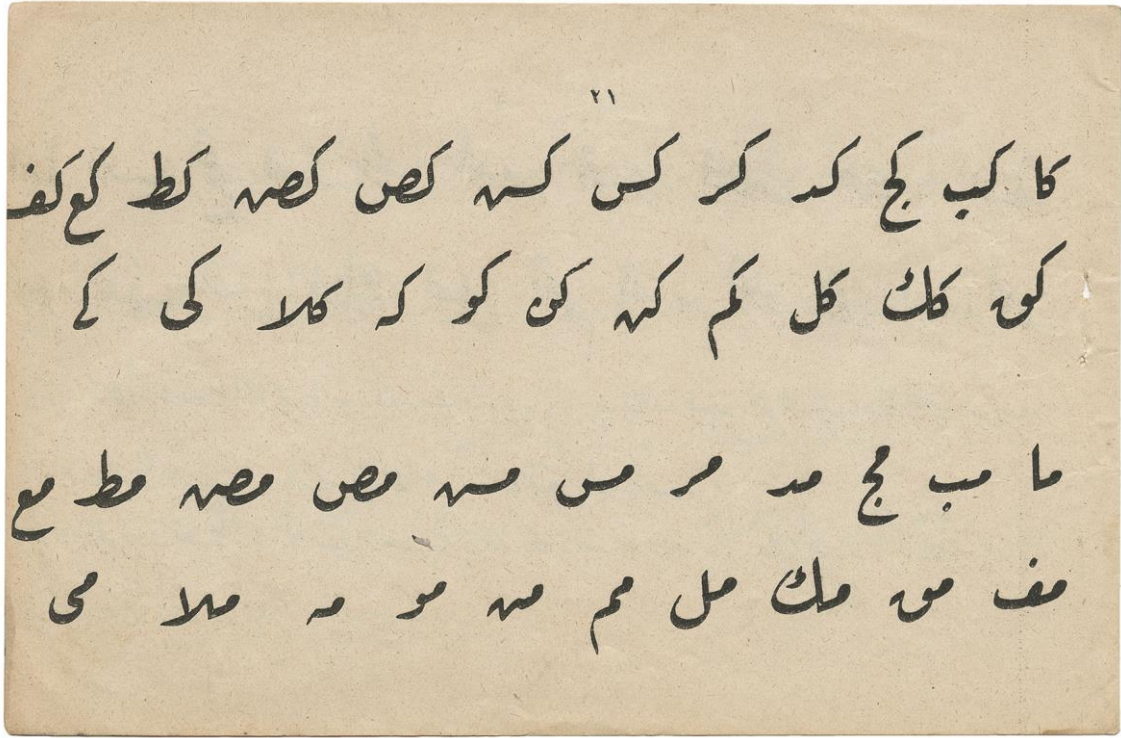 ٢١
كا كب كج كد كر كس كس كص كص كط كع كف
كق كك كل كم كن كن كو كه كلا كى كے
ما مب مج مد مر مس مس مص مص مط مع
مف مق مك مل مم من مو مه ملا مى